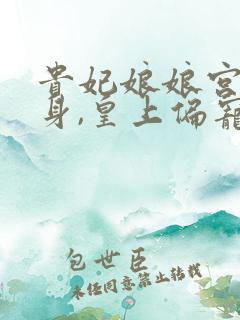 貴妃娘娘宮
身,皇上偏寵
包世臣
未经同意禁止转载